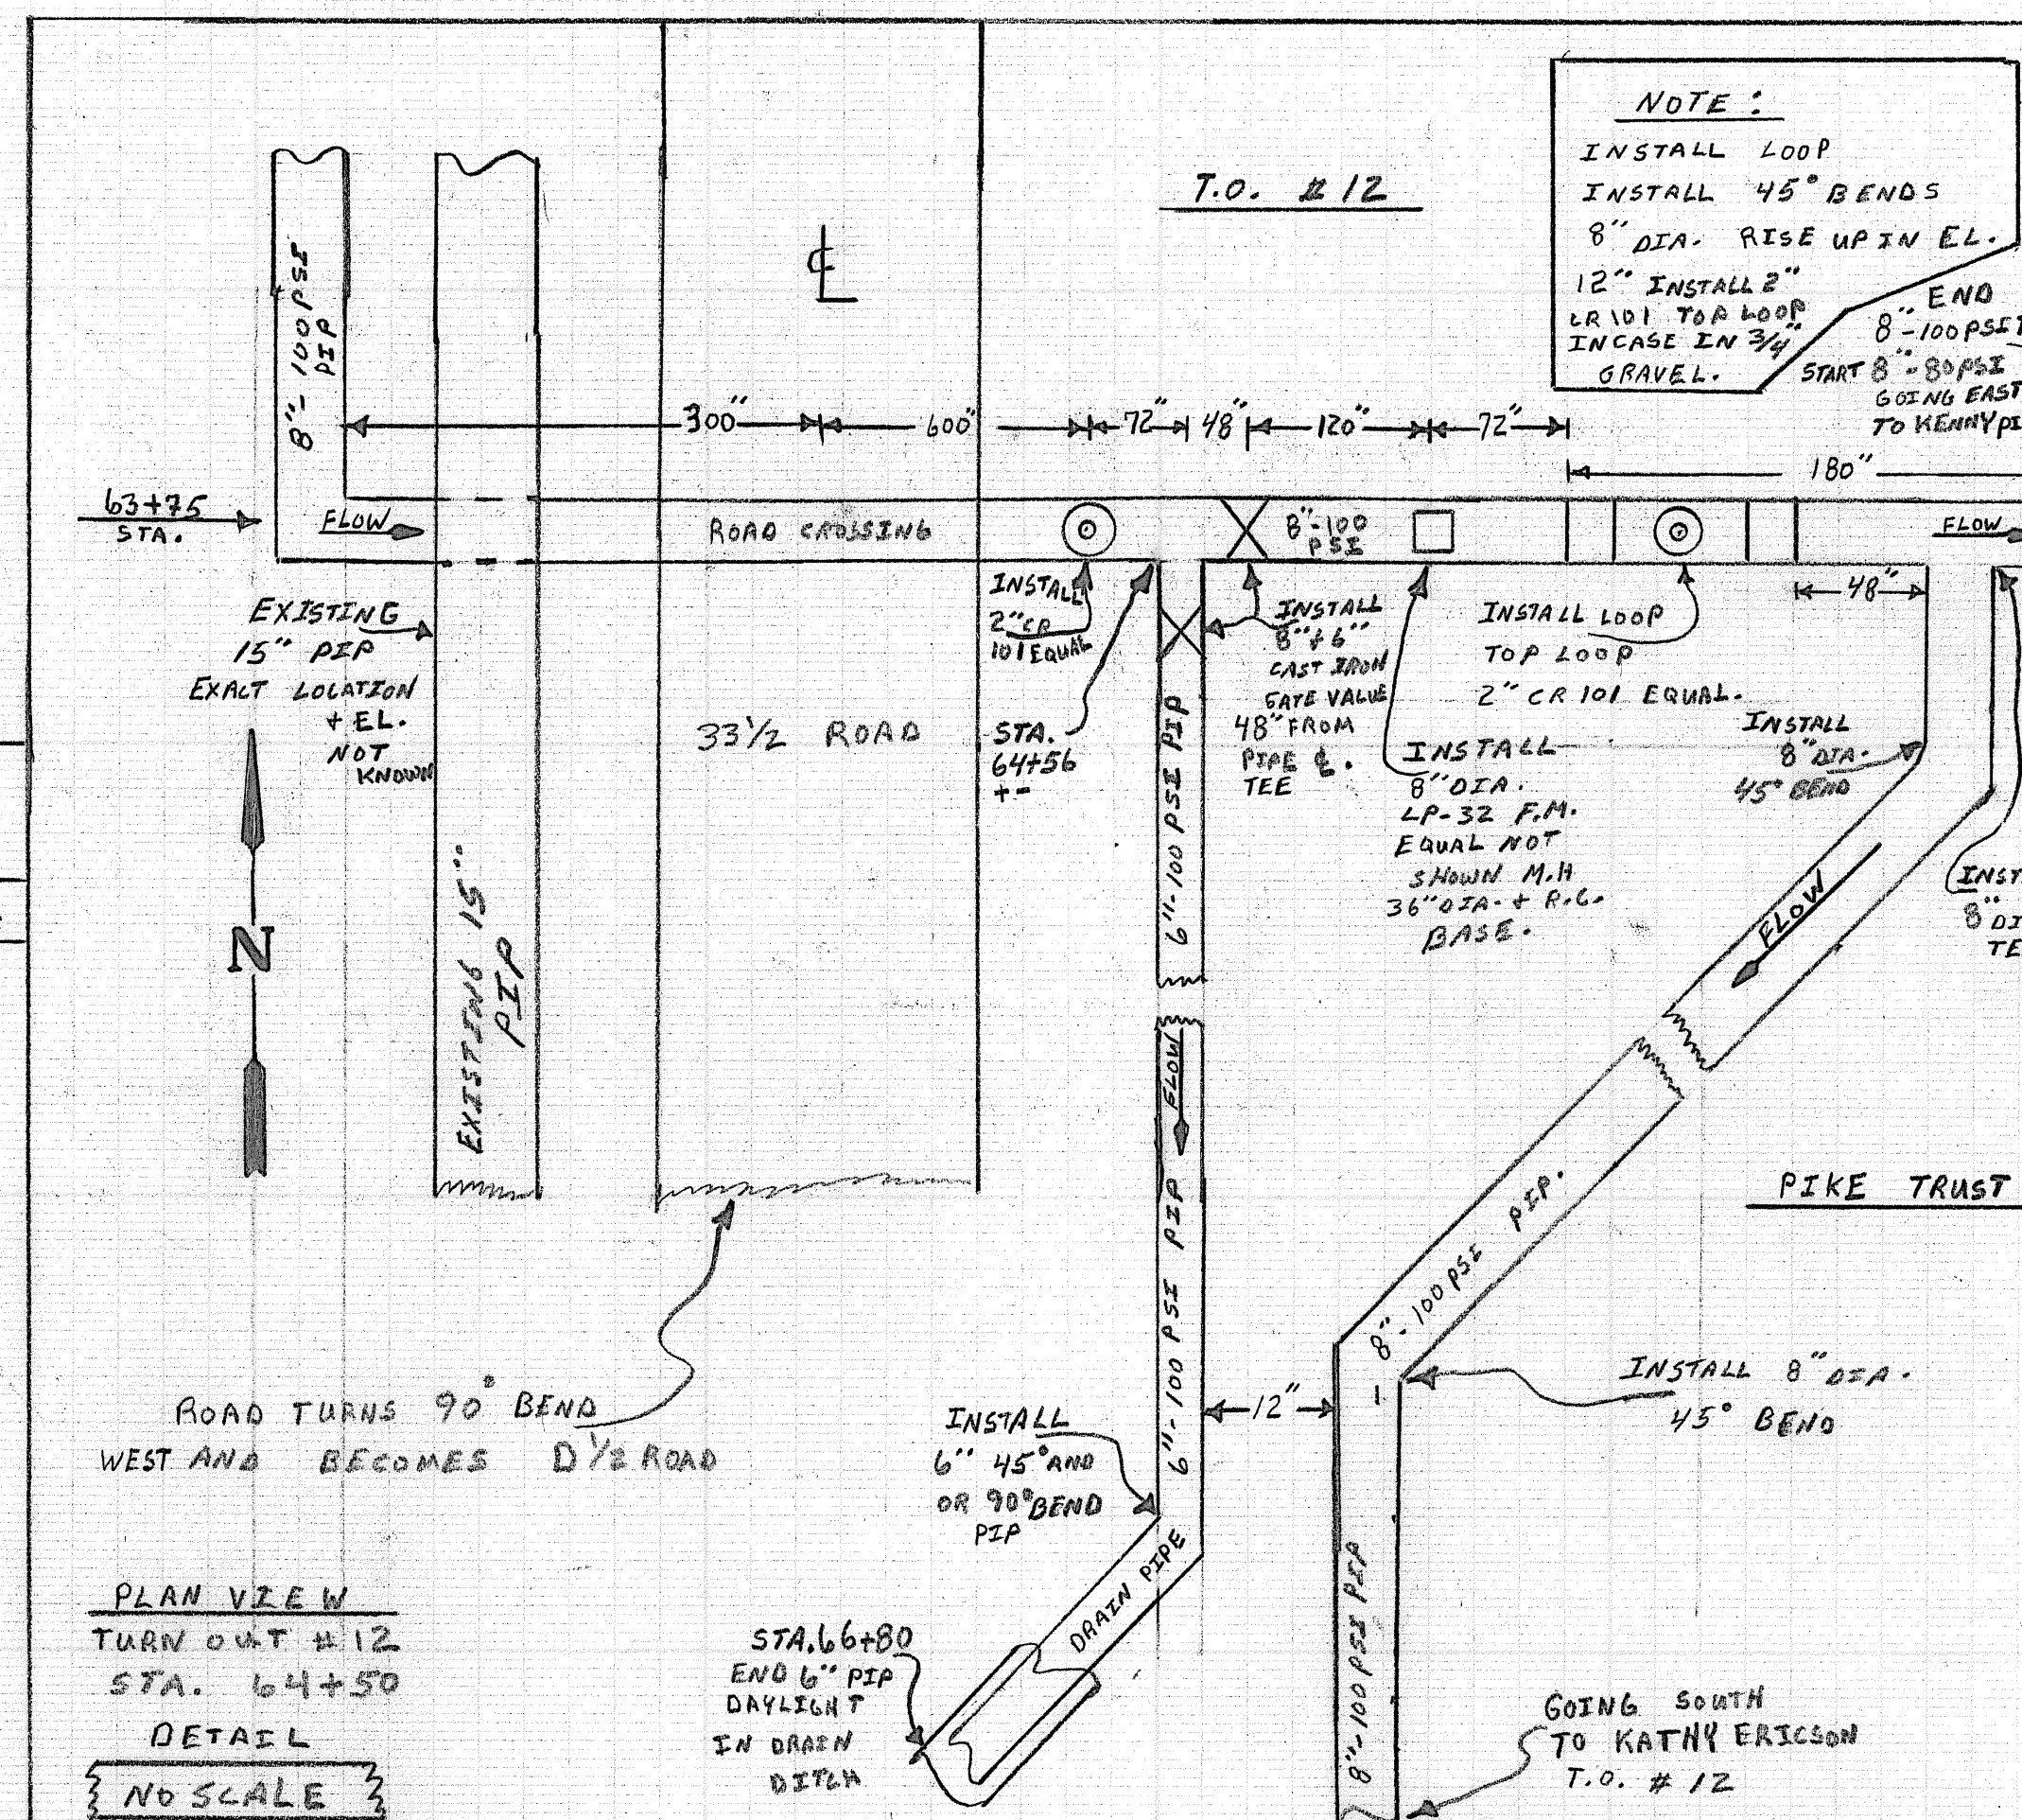 T.O. # 12
NOTE :
INSTALL LOOP
INSTALL 45° BENDS
8" DIA. RISE UP IN EL.
12" INSTALL 2"
CR 101 TOP LOOP
INCASE IN 3/4"
GRAVEL.
END
8"-100 PSI
START 8"-80 PSI
GOING EAST
TO KENNY
8"-100 PSI
PIP
℄
300"
600"
72"
48"
120"
72"
180"
63+75
STA.
FLOW
ROAD CROSSING
8"-100
PSI
FLOW
EXISTING
15" PIP
EXACT LOCATION
+ EL.
NOT
KNOWN
INSTALL
2" CR
101 EQUAL
STA.
64+56
+-
33 1/2 ROAD
INSTALL
8"+6"
CAST IRON
GATE VALUE
48" FROM
PIPE ℄.
TEE
INSTALL LOOP
TOP LOOP
2" CR 101 EQUAL.
48"
INSTALL
8" DIA.
LP-32 F.M.
EQUAL NOT
SHOWN M.H
36" DIA. + R.C.
BASE.
INSTALL
8" DIA.
45° BEND
INST
8" DI
TE
N
EXISTING 15"
PIP
6"-100 PSI PIP
FLOW
FLOW
6"-100 PSI PIP
8"-100 PSI PIP.
PIKE TRUST
12"
INSTALL 8" DIA.
45° BEND
ROAD TURNS 90° BEND
WEST AND BECOMES D 1/2 ROAD
INSTALL
6" 45° AND
OR 90° BEND
PIP
DRAIN PIPE
STA. 66+80
END 6" PIP
DAYLIGHT
IN DRAIN
DITCH
8"-100 PSI PIP
GOING SOUTH
TO KATHY ERICSON
T.O. # 12
PLAN VIEW
TURN OUT # 12
STA. 64+50
DETAIL
NO SCALE